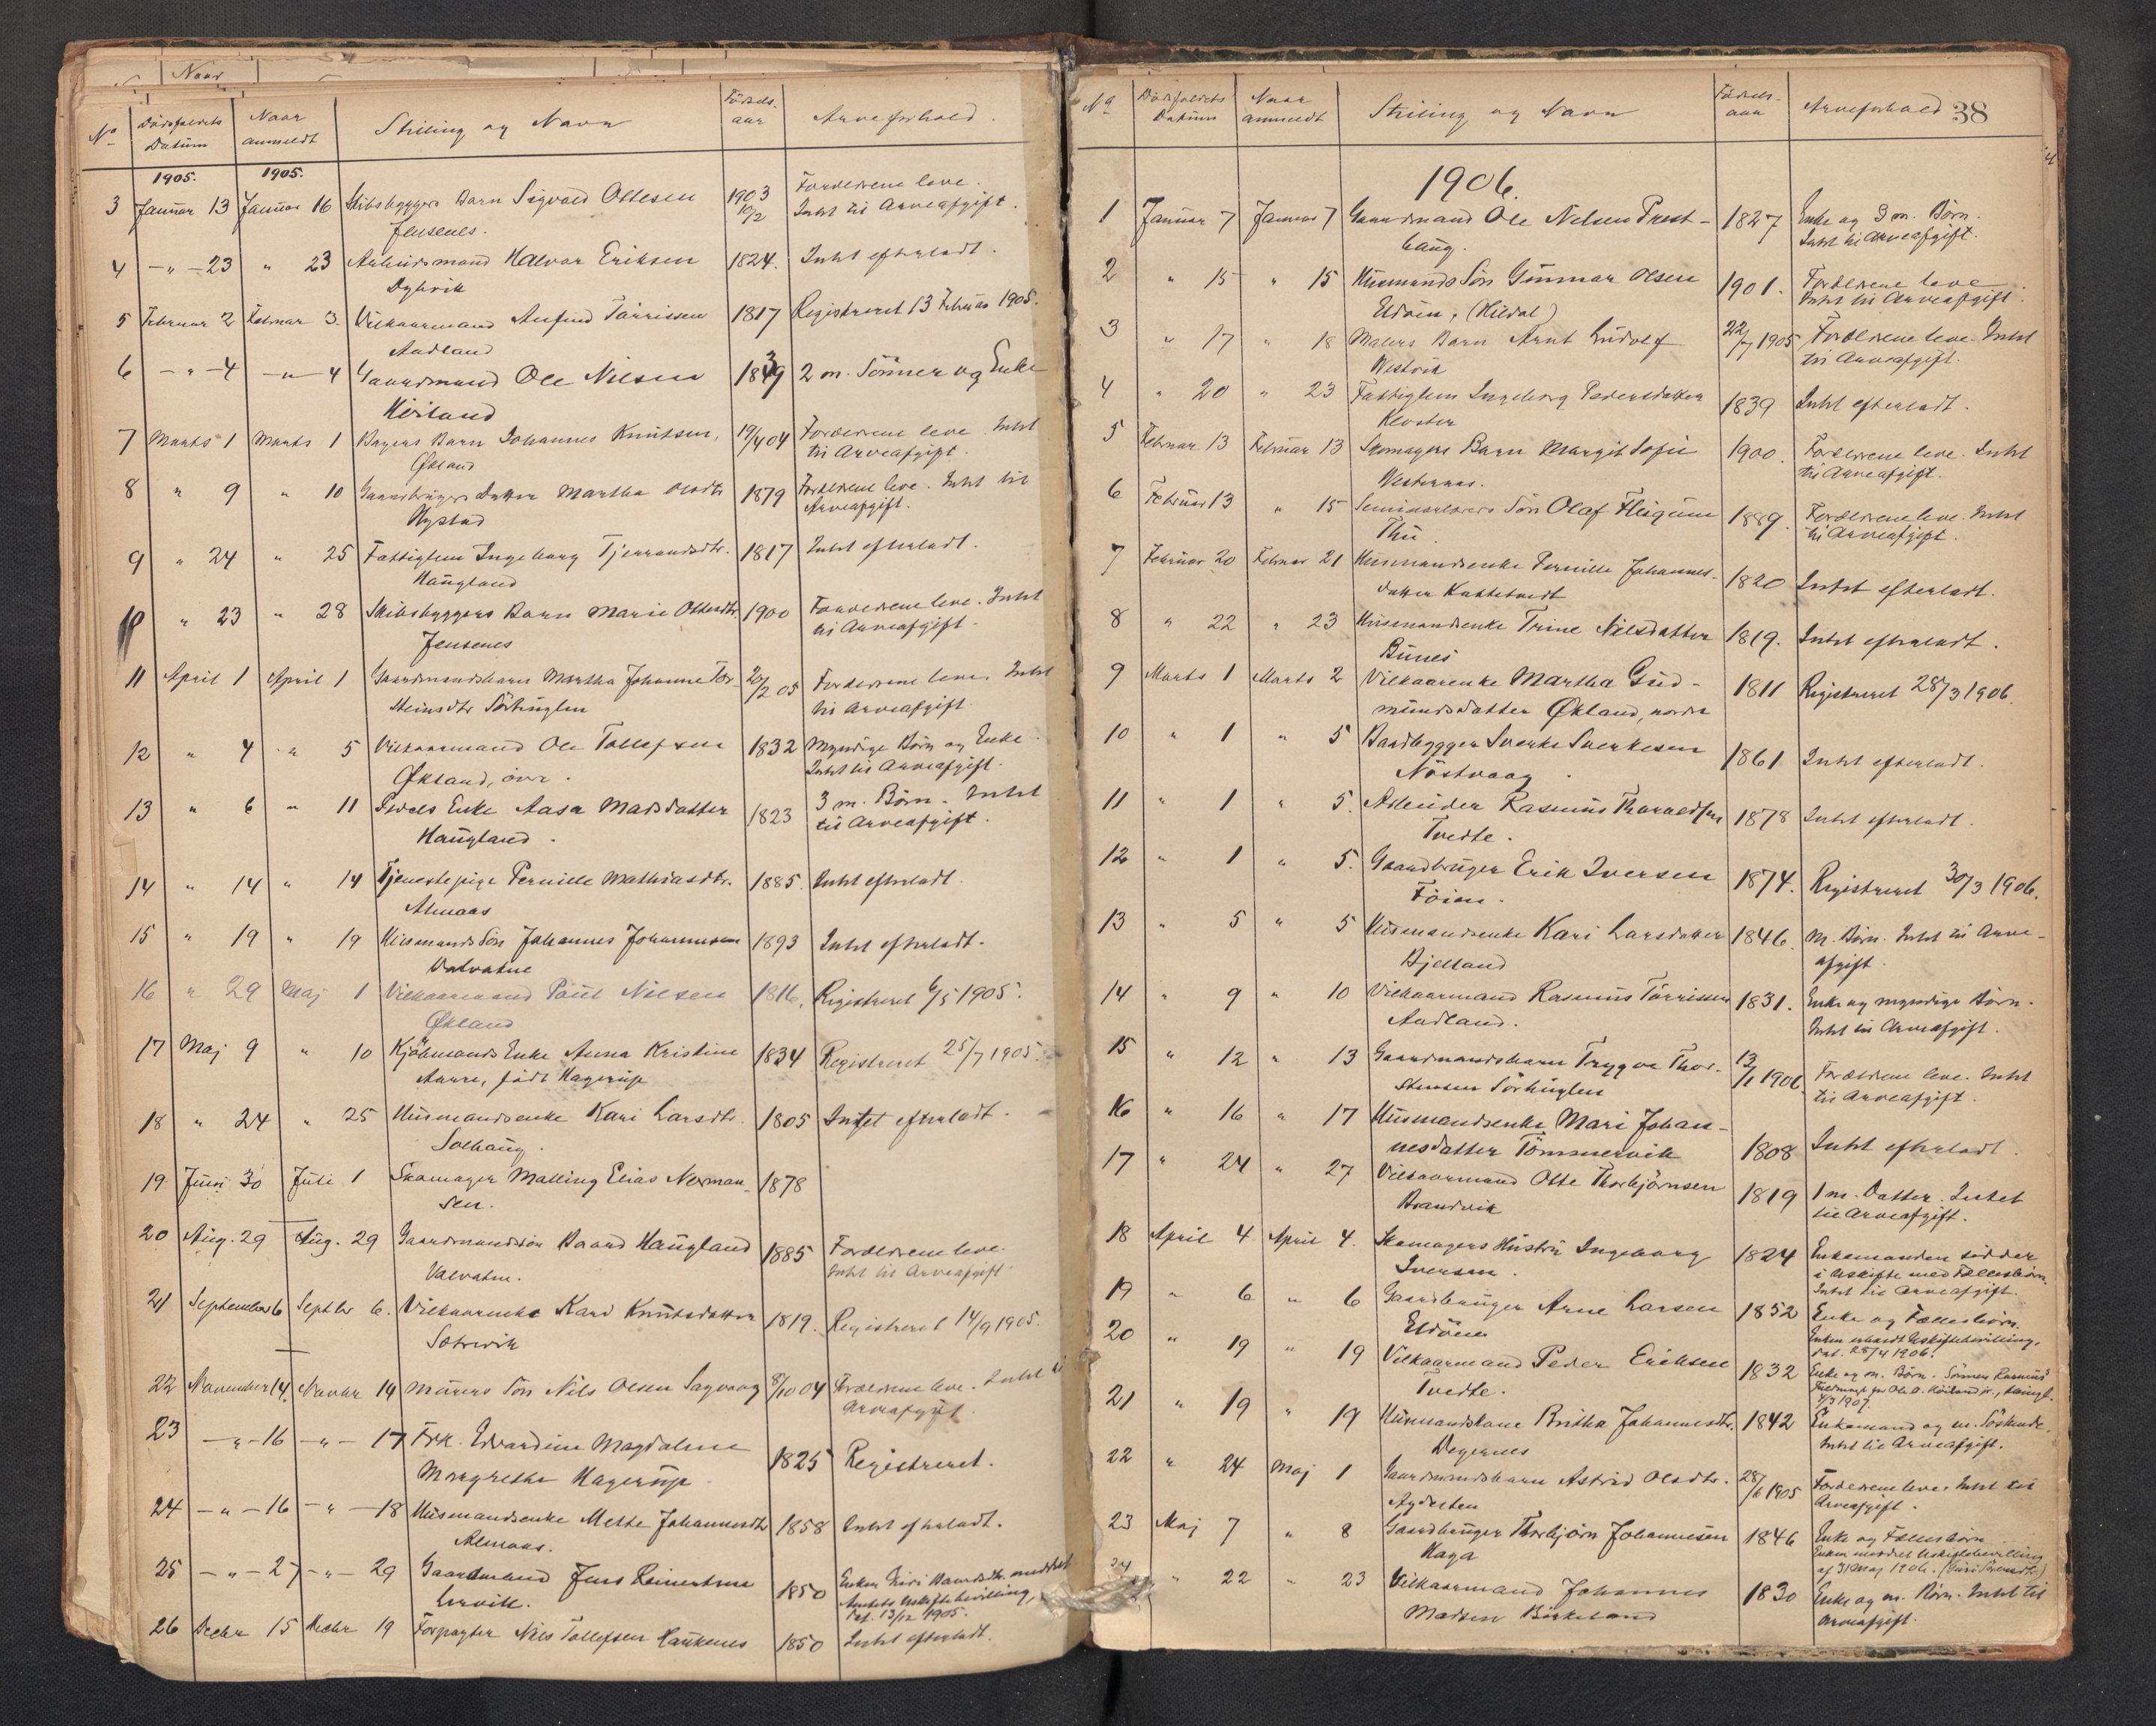 Naar
No Dödsfaldets Datum Naar anmeldt Stilling og Navn Födselsaar Arveforhold.
1905. 1905.
3 Januar 13 Januar 16 Skibsbyggers Barn Sigvald Ottesen 1903 10/2 Forældrene leve.
Jensenes. Intet til Arveafgift.
4 -"- 23 " 23 Arbeidsmand Halvor Eriksen 1824. Intet efterladt.
Dybvik
5 Februar 2 Februar 3. Vilkaarmand Anfind Törrissen 1817 Registreret 13 Februar 1905.
Audland
6 -"- 4 -"- 4 Gaardmand Ole Nilsen 1839 2 m. Sönner og Enke
Koiland
7 Marts 1 Marts 1 Bagers Barn Johannes Knutsen, 19/4 04 Forældrene leve. Intet
Økland til Arveafgift.
8 " 9 " 10 Gaardbrugers Datter Martha Olsdtr 1879 Forældrene leve. Intet til
Nystad Arveafgift.
9 " 24 " 25 Fattiglem Ingeborg Tjerrandsdtr. 1817 Intet efterladt.
Haugland
10 " 23 " 28 Skibsbyggers Barn Marie Ottesdtr. 1900 Forældrene leve. Intet
Jensenes til Arveafgift.
11 April 1 April 1 Gaardmandsbarn Martha Johanne Tor- 20/2 05 Forældrene leve. Intet
steinsdtr Sörhuglen til Arveafgift
12 " 4 " 5 Vilkaarmand Ole Tollefsen 1832 Myndige Börn og Enke.
Økland, övre. Intet til Arveafgift.
13 " 6 " 11 Enke Aasa Madsdatter 1823 3 m. Börn. Intet
Haugland. til Arveafgift.
14 " 14 " 14 Tjenestepige Pernille Mathiasdtr. 1885. Intet efterladt.
Almaas
15 " 19 " 19 Husmands Sön Johannes Johannesen 1893 Intet efterladt.
Valvatne
16 " 29 Maj 1 Vilkaarmand Poul Nilsen 1816. Registreret 6/5 1905.
Økland
17 Maj 9 " 10 Kjöbmands Enke Anna Kristine 1834 Registreret 25/7 1905.
Aarre, födt Hagerup
18 " 24 " 25 Husmandsenke Kari Larsdtr. 1805 Intet efterladt.
Solhaug.
19 Juni 30 Juli 1 Skomager Malling Elias Norman- 1878
sen.
20 Aug. 29 Aug. 29 Gaardmandssön Baard Haugland 1885 Forældrene leve.
Valvatne. Intet til Arveafgift
21 September 6 Septbr 6. Vilkaarenke Kari Knutsdatter 1819. Registreret 14/9 1905.
Sotrevik
22 November 14. Novbr 14 Murers Sön Nils Olsen Sagvaag 8/10 04 Forældrene leve. Intet til
Arveafgift
23 -"- 16 -"- 17 Frk. Edvardine Magdalene 1825 Registreret.
Margrethe Hagerup
24 -"- 16 -"- 18 Husmandsenke Mette Johannesdtr 1858 Intet efterladt.
Almaas.
25 -"- 27 -"- 29 Gaardmand Jens Reinertsen 1850 Enken Baardsdtr. meddelt
Lervik. Amtets Uskiftebevilling,
dat. 13/12 1905.
26 Decbr 15 Decbr 19 Forpagter Nils Tollefsen Haukenes 1850 Intet efterladt.
No Dödsfaldets Datum Naar anmeldt Stilling og Navn Födselsaar Arveforhold 38
1906.
1 Januar 7 Januar 7 Gaardmand Ole Nilsen Prest- 1827 Enke og 3 m. Börn.
haug. Intet til Arveafgift.
2 " 15 " 15 Husmands Sön Gunnar Olsen 1901. Forældrene leve.
Eldöen, (Huldal) Intet til Arveafgift.
3 " 17 " 18 Malers Barn Arnt Ludolf 22/7 1905 Forældrene leve. Intet
Westvik til Arveafgift.
4 " 20 " 23 Fattiglem Ingeborg Pedersdatter 1839 Intet efterladt.
Kloster
5 Februar 13 Februar 13 Skomagers Barn Margit Sofie 1900. Forældrene leve. Intet
Vesternes. til Arveafgift.
6 Februar 13 " 15 Seminarlærers Sön Olaf Fleigum 1889. Forældrene leve. Intet
Thu til Arveafgift.
7 Februar 20 Februar 21 Husmandsenke Pernille Johannes- 1820 Intet efterladt.
datter Kattetvedt
8 " 22 " 23 Husmandsenke Trine Nilsdatter 1819. Intet efterladt.
Bunes
9 Marts 1 Marts 2 Vilkaarenke Martha Gud- 1811 Registreret 28/3 1906.
mundsdatter Økland, nordre
10 " 1 " 5 Baadbygger Sverke Sverkesen 1861 Intet efterladt.
Nöstvaag.
11 " 1 " 5. Arbeider Rasmus Thorvaldsen 1878 Intet efterladt.
Tvedte.
12 " 1 " 5. Gaardbruger Erik Iversen 1874. Registreret 30/3 1906.
Föien.
13 " 5 " 5 Husmandsenke Kari Larsdatter 1846. M. Börn. Intet til Arve-
Bjelland afgift.
14 " 9 " 10 Vilkaarmand Rasmus Törrissen 1831. Enke og myndige Börn.
Audland. Intet til Arveafgift.
15 " 12 " 13 Gaardmandsbarn Trygve Thor- 13/1 1906. Forældrene leve. Intet
stensen Sörhuglen til Arveafgift.
16 " 16 " 17 Husmandsenke Mari Johan- 1808 Intet efterladt.
nesdatter Tömmervik
17 " 24 " 27 Vilkaarmand Otte Thorbjörnsen 1819 1 m. Datter. Intet
Brandvik til Arveafgift.
18 April 4 April 4. Skomagers Hustru Ingeborg 1824 Enkemanden sidder
Iversen. i Uskifte med Fællesbörn.
Intet til Arveafgift.
19 " 6 " 6 Gaardbruger Arne Larsen 1852 Enke og Fællesbörn.
Eldöen Enken erholdt Uskiftebevilling,
dat. 28/4 1906.
20 " 19 " 19 Vilkaarmand Peder Eriksen 1832 Enke og m. Börn. Sönnen Rasmus
Tvedte. Fuldmagt for Ole O. Koiland jr.,
1/3 1907.
21 " 19 " 19 Husmandskone Britha Johannesdtr. 1842 Enkemand og m. Söskende.
Degernes Intet til Arveafgift.
22 " 24 Maj 1 Gaardmandsbarn Astrid Olsdtr. 28/6 1905 Forældrene leve. Intet til
Agdesten Arveafgift.
23 Maj 7 " 8 Gaardbruger Thorbjörn Johannesen 1846 Enke og Fællesbörn
Haga Enken meddelt Uskiftebevilling
af 31 Maj 1906.
24 " 22 " 23 Vilkaarmand Johannes 1830 Enke og m. Börn. Intet til
Madsen Birkeland Arveafgift.